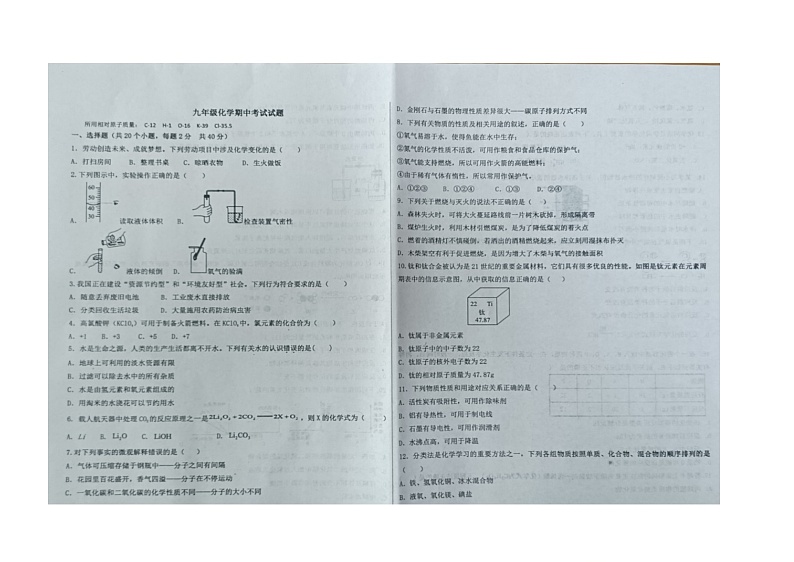 九年级化学期中考试试题
所用相对原子质量： C-12 H-1 O-16 K-39 Cl-35.5
一、选择题（共20个小题，每题2分 共40分）
1．劳动创造未来、成就梦想。下列劳动项目中涉及化学变化的是（ ）
A．打扫房间 B．整理书桌 C．晾晒衣物 D．生火做饭
2.下列图示中，实验操作正确的是（ ）
60
50
40
30
A． 读取液体体积 B． 检查装置气密性
C． 液体的倾倒 D． 氧气的验满
3.我国正在建设“资源节约型”和“环境友好型”社会。下列行为符合要求的是（ ）
A．随意丢弃废旧电池 B．工业废水直接排放
C．分类回收生活垃圾 D．大量施用农药防治病虫害
4．高氯酸钾（KClO₄）可用于制备火箭燃料。在KClO₄中，氯元素的化合价为（ ）
A．+1 B．+3 C．+5 D．+7
5．水是生命之源，人类的生产生活都离不开水。下列有关水的认识错误的是（ ）
A．地球上可利用的淡水资源有限
B．过滤可以除去水中的所有杂质
C．水是由氢元素和氧元素组成的
D．用淘米的水浇花可以节约用水
6．载人航天器中处理CO₂的反应原理之一是2Li₂O₂+2CO₂══2X+O₂，则X的化学式为（ ）
A．Li B．Li₂O C．LiOH D．Li₂CO₃
7.对下列事实的微观解释错误的是（ ）
A．气体可压缩存储于钢瓶中——分子之间有间隔
B．花园里百花盛开，香气四溢——分子在不停运动
C．一氧化碳和二氧化碳的化学性质不同——分子的大小不同
D．金刚石与石墨的物理性质差异很大——碳原子排列方式不同
8．下列有关物质的性质及相关用途的叙述，正确的是（ ）
①氧气易溶于水，使得鱼能在水中生存；
②氮气的化学性质不活泼，可用作粮食和食品仓库的保护气；
③氧气能支持燃烧，所以可用作火箭的高能燃料；
④由于稀有气体有惰性，所以常用作保护气。
A．①②③ B．②③④ C．①③ D．②④
9．下列关于燃烧与灭火的说法不正确的是（ ）
A．森林失火时，可将大火蔓延路线前一片树木砍掉，形成隔离带
B．煤炉生火时，利用木材引燃煤炭，是为了降低煤炭的着火点
C．燃着的酒精灯不慎碰倒，若洒出的酒精燃烧起来，应立刻用湿抹布扑灭
D．木柴架空有利于促进燃烧，是因为增大了木柴与氧气的接触面积
10.钛和钛合金被认为是21世纪的重要金属材料，它们具有很多优良的性能，如图是钛元素在元素周
期表中的信息示意图，从中获取的信息正确的是（ ）
22 Ti
钛
47.87
A．钛属于非金属元素
B．钛原子中的中子数为22
C．钛原子的核外电子数为22
D．钛的相对原子质量为47.87g
11．下列物质性质和用途对应关系正确的是（ ）
A．活性炭有吸附性，可用作除味剂
B．铝有导热性，可用于制电线
C．石墨有导电性，可用作润滑剂
D．水沸点高，可用于降温
12．分类法是化学学习的重要方法之一，下列各组物质按照单质、化合物、混合物的顺序排列的是
（ ）
A．铁、氢氧化铜、冰水混合物
B．液氧、氧化镁、碘盐